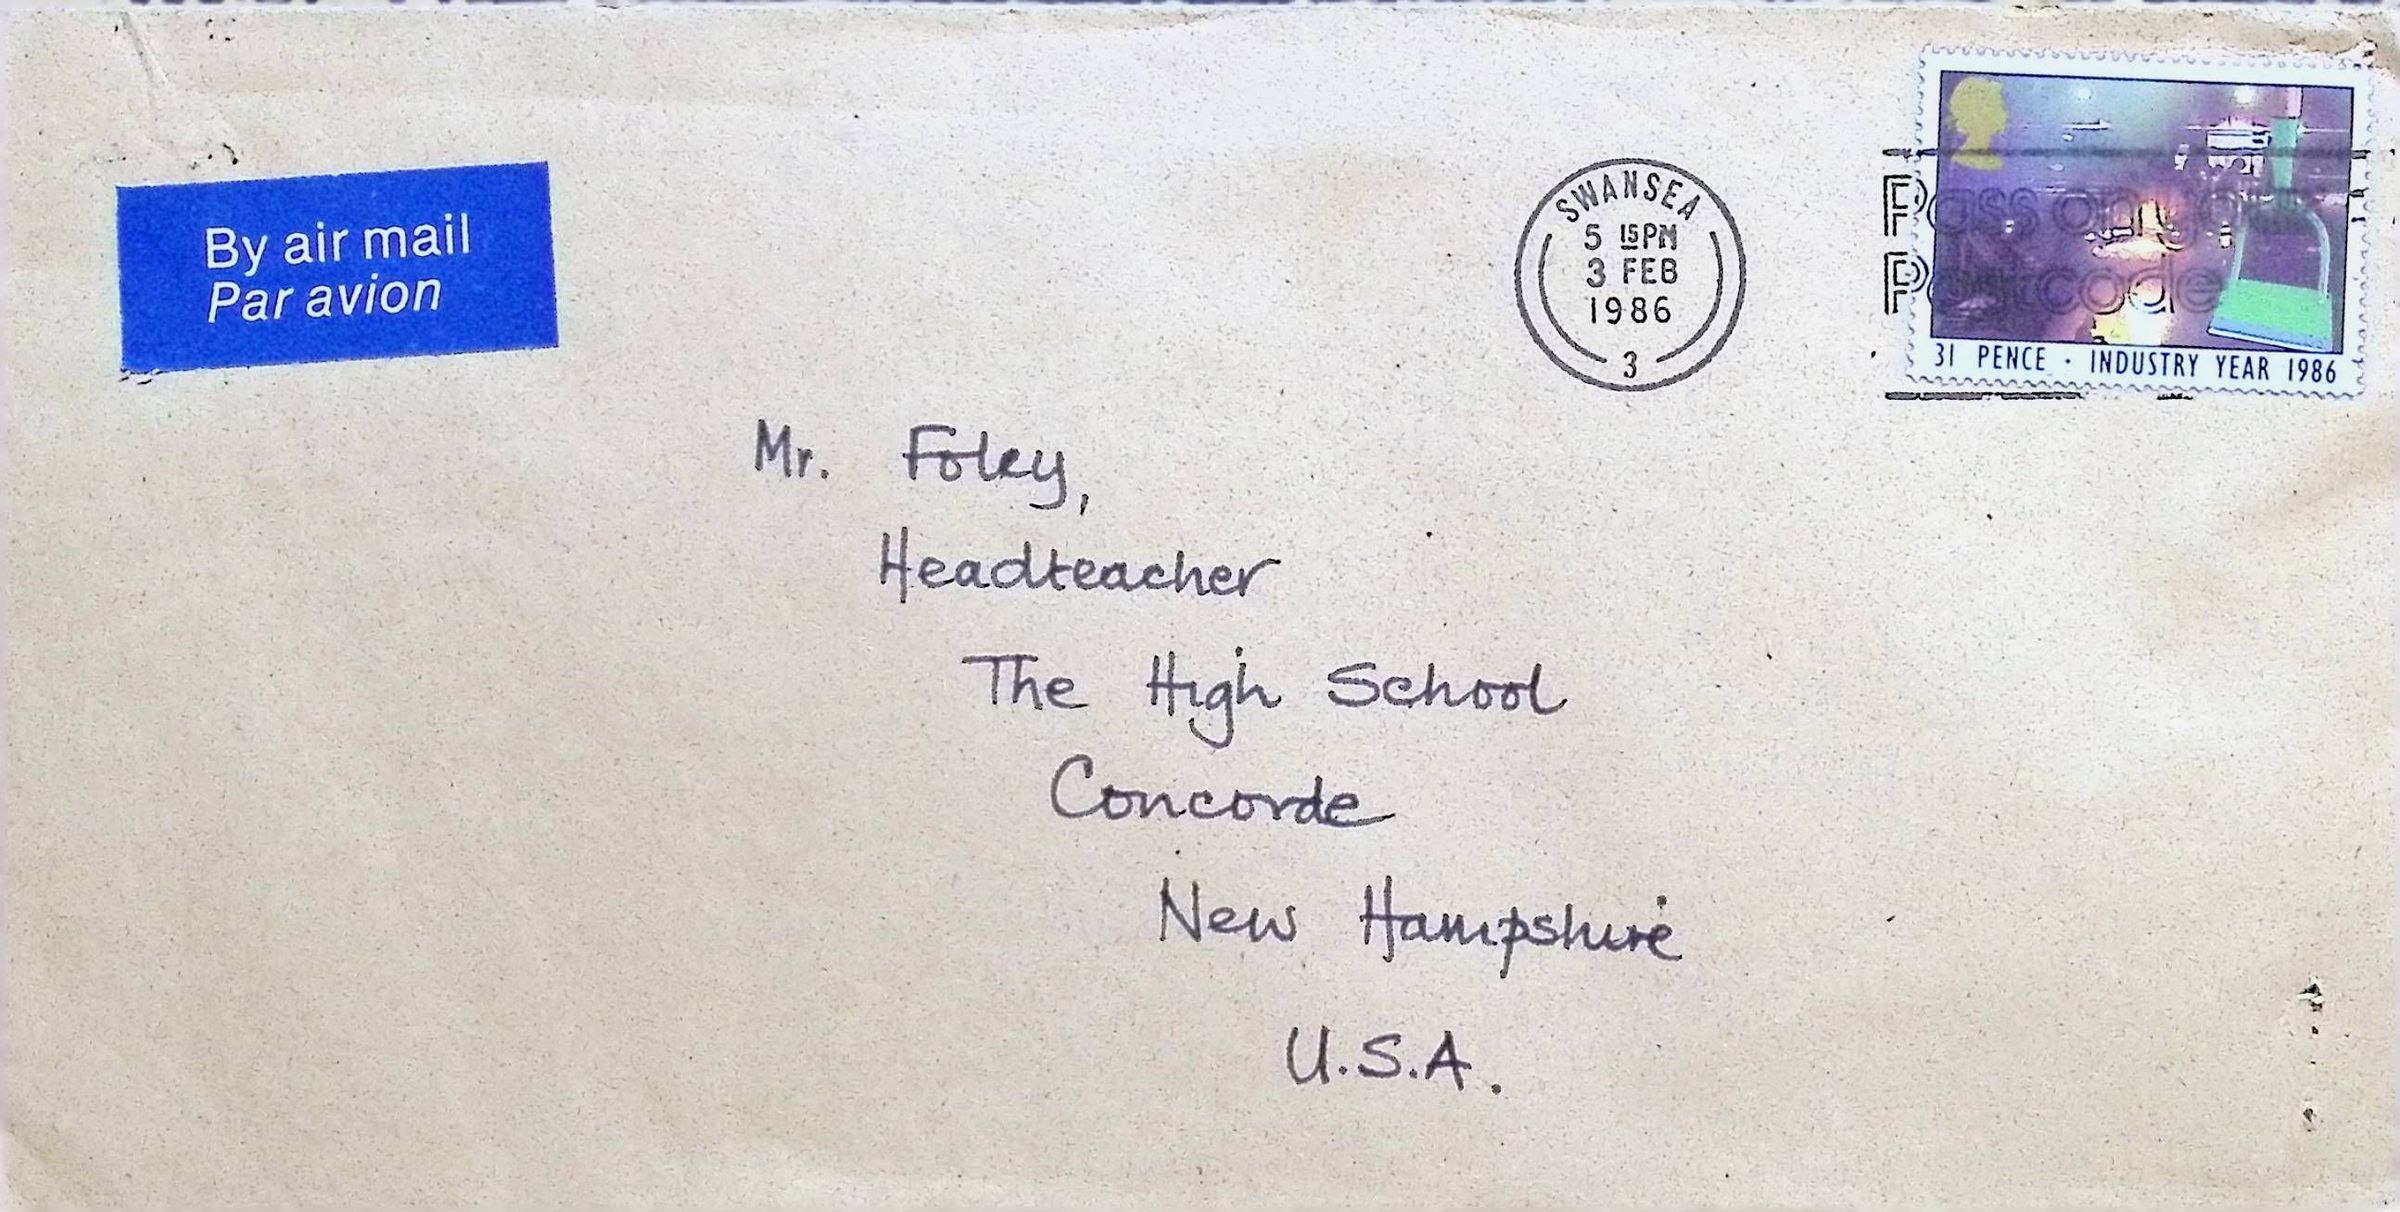 By air mail
Par avion
SWANSEA
5 15PM
3 FEB
1986
3
Pass on your
Postcode
31 PENCE · INDUSTRY YEAR 1986
Mr. Foley,
Headteacher
The High School
Concorde
New Hampshire
U.S.A.